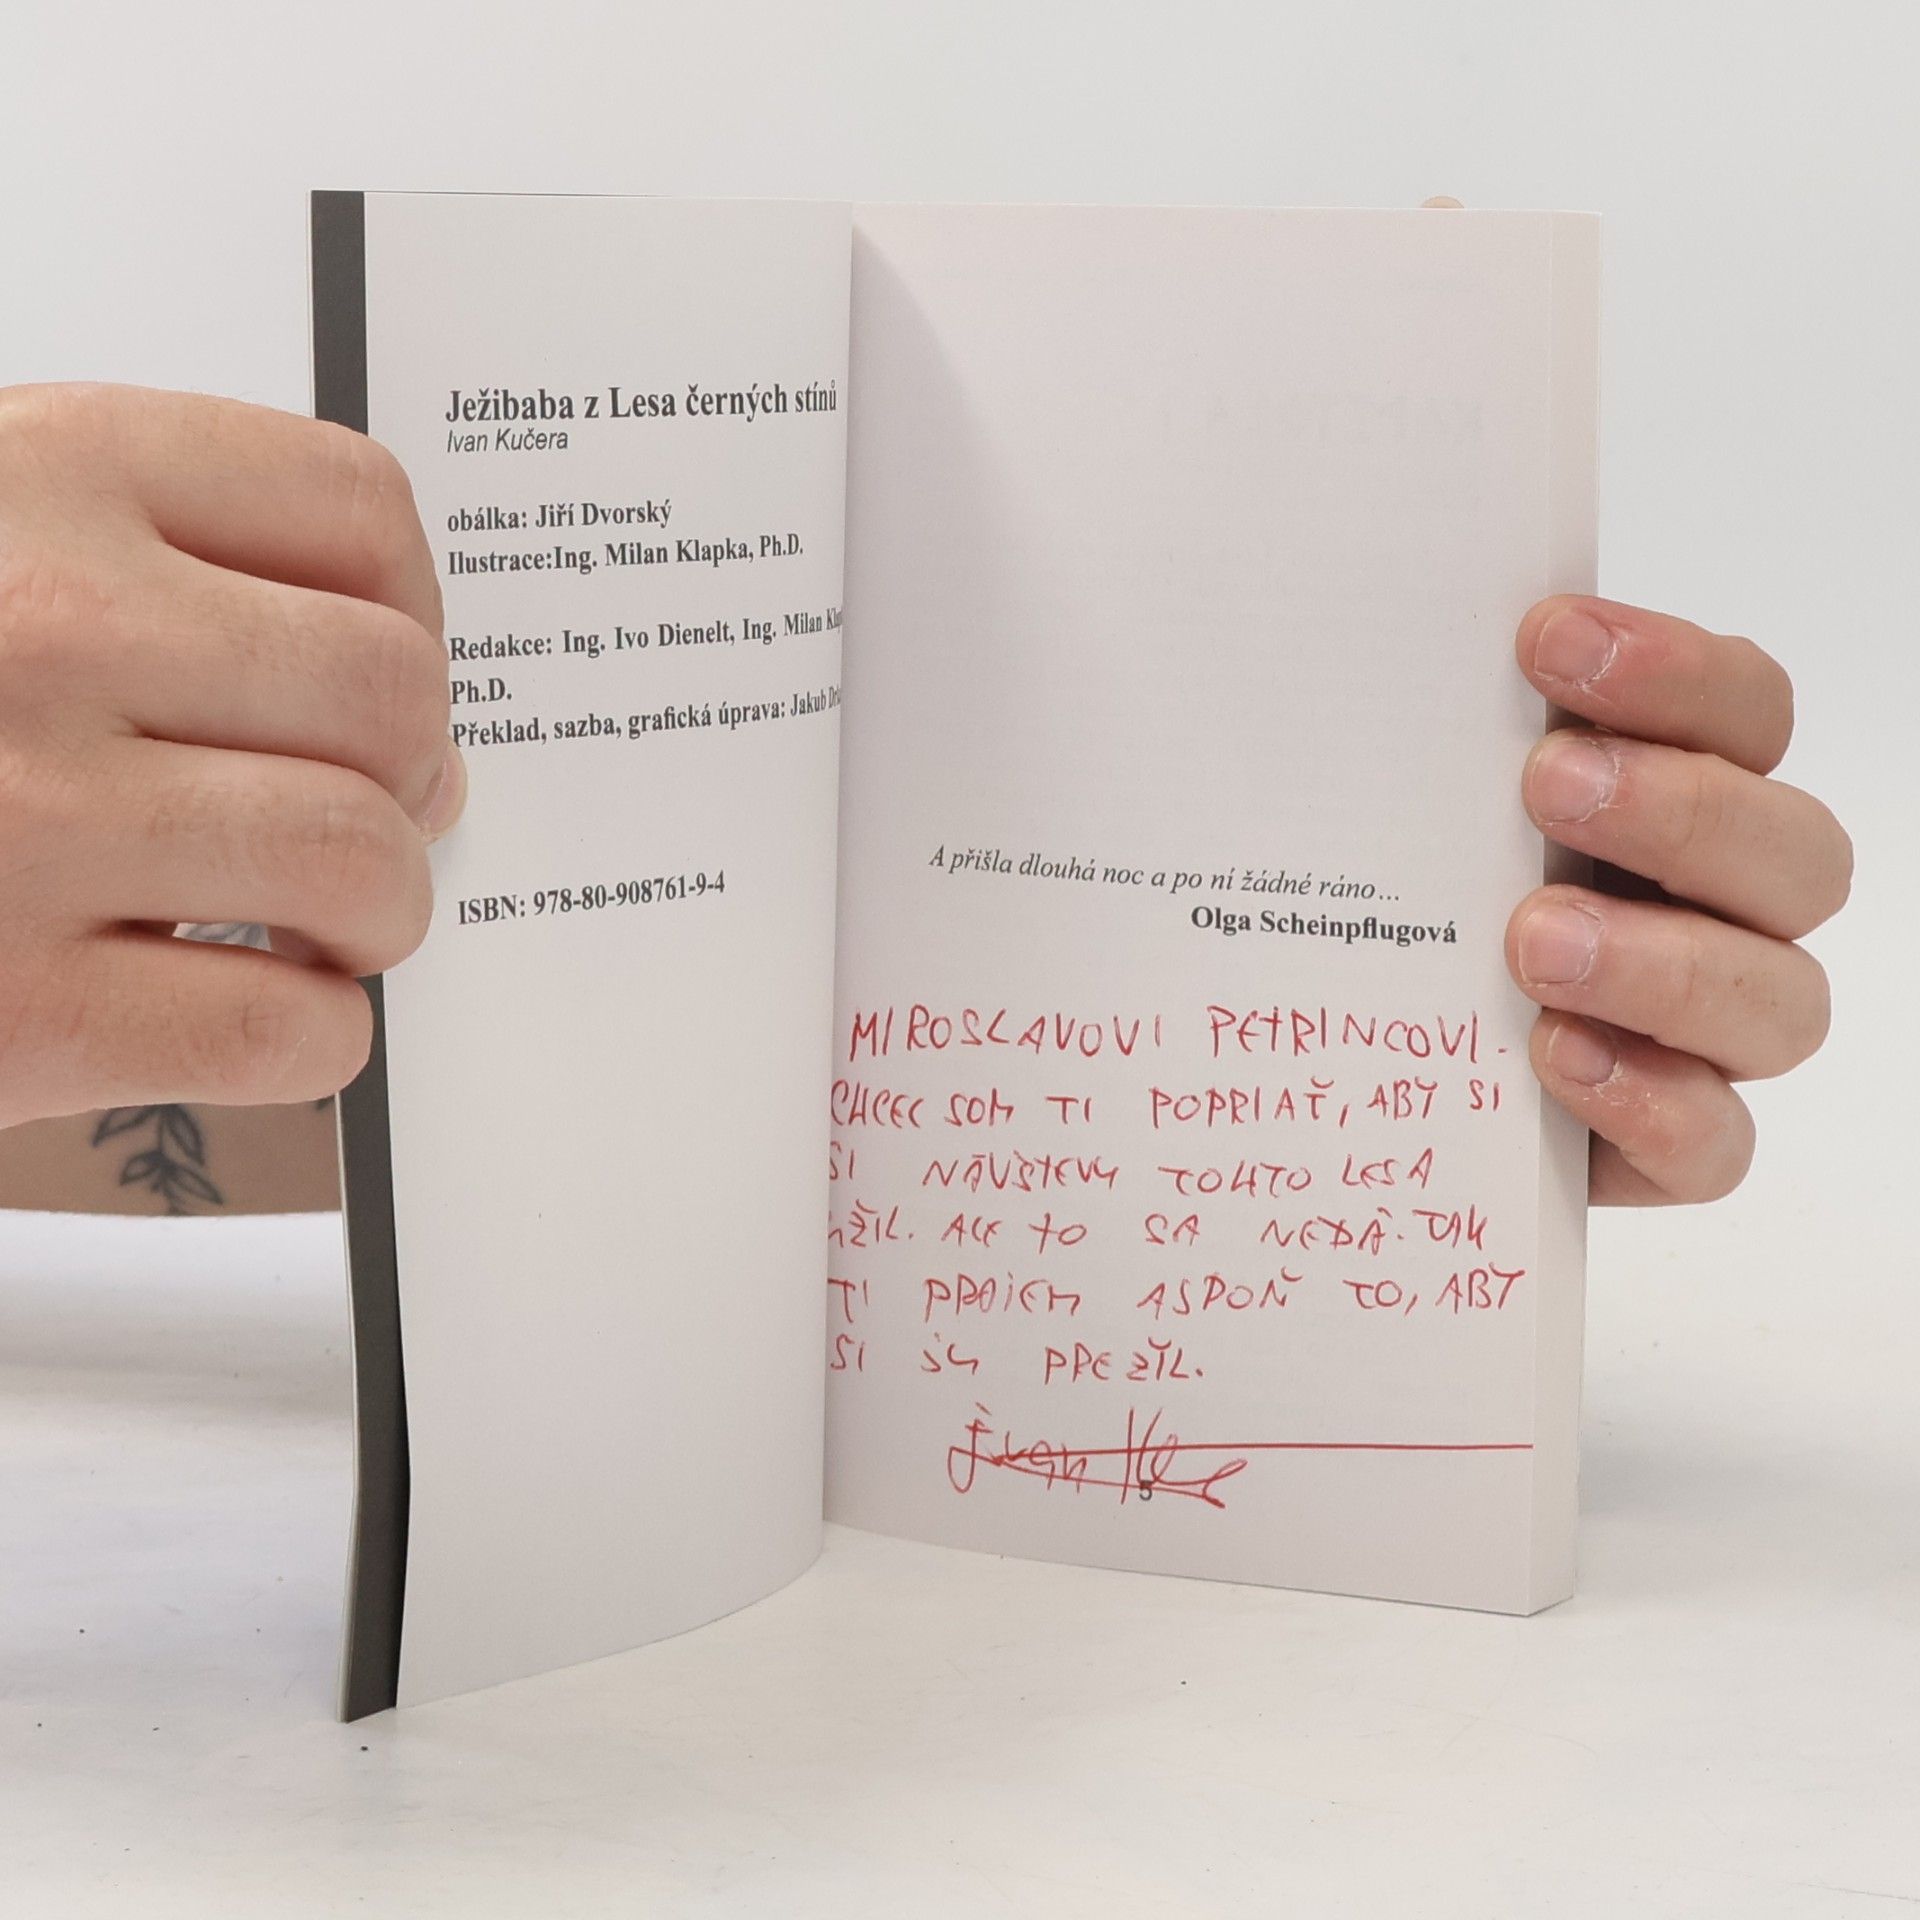 Ježibaba z Lesa černých stínů
Ivan Kučera
obálka: Jiří Dvorský
Ilustrace:Ing. Milan Klapka, Ph.D.
Redakce: Ing. Ivo Dienelt, Ing. Milan
Ph.D.
Překlad, sazba, grafická úprava: Jakub
ISBN: 978-80-908761-9-4
A přišla dlouhá noc a po ní žádné ráno...
Olga Scheinpflugová
MIROSLAVOVI PETRINCOVI.
CHCEL SOM TI POPRIAŤ, ABY SI
SI NÁVŠTEVU TOHTO LESA
UŽIL. ALE TO SA NEDÁ. TAK
TI PRAJEM ASPOŇ TO, ABY
SI JU PREŽIL.
Ivan
5